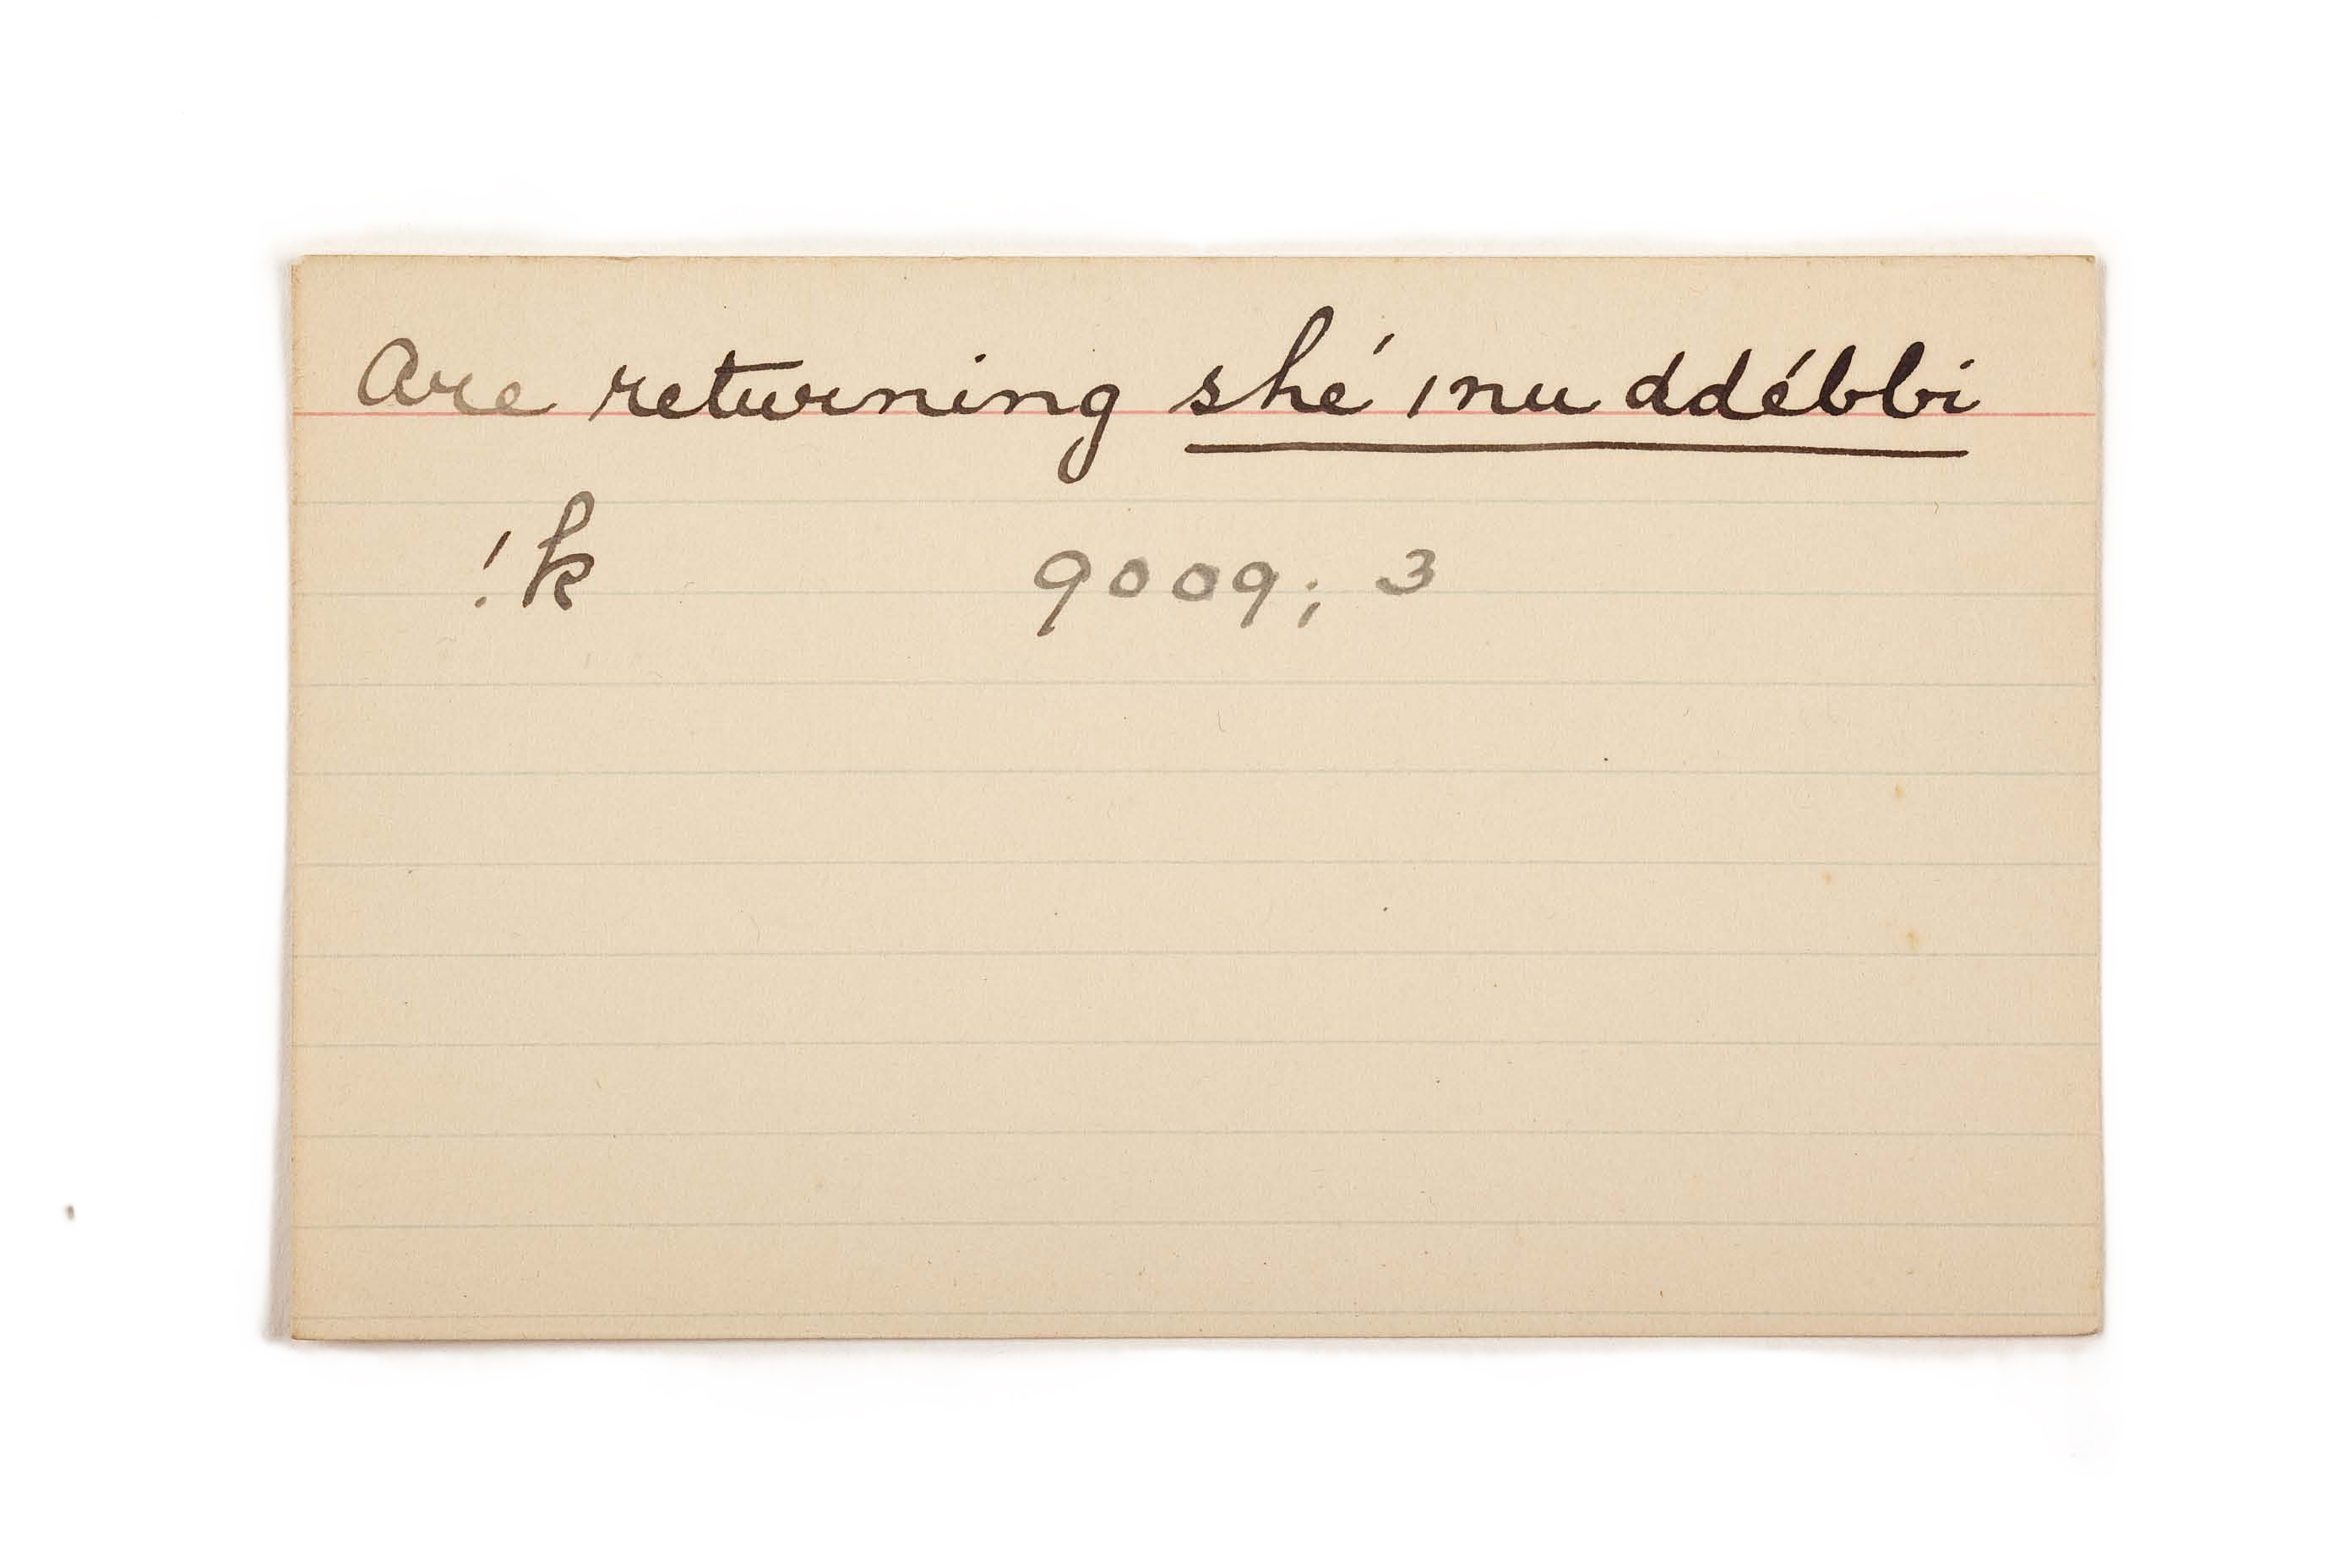 Are returning shé ınu ddébbi
!k 9009; 3